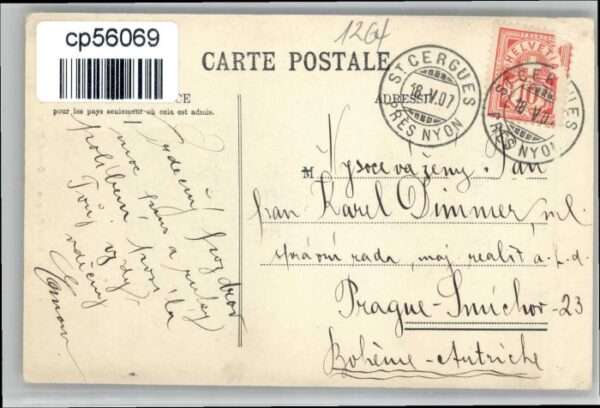 cp56069
1264
CARTE POSTALE
CE
ADRESSE
pour les pays seulement où cela est admis.
ST CERGUES
18.V.07
PRÈS NYON
HELVETIA
10
ST CERGUES
18.V.07
PRÈS NYON
Srdečný pozdrav
a
políbení
Tvůj vždy
vděčný
M Vysoce vážený Pan
pan Karel Dimmer, ml.
správní rada, maj. realit a.t.d.
Prague-Smíchov-23
Bohème-Autriche